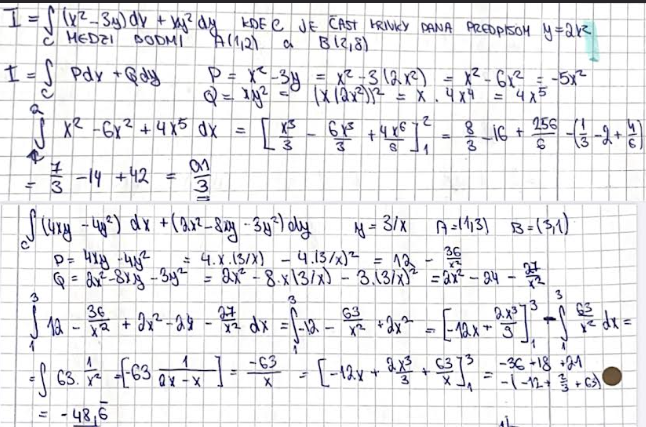 I = ∫_C (x²-3y)dx + xy² dy KDE C JE ČASŤ KRIVKY DANA PREDPISOM y=2x²
MEDZI BODMI A(1,2) a B(2,8)
I = ∫_C Pdx + Qdy P = x²-3y = x²-3(2x²) = x²-6x² = -5x²
Q = xy² = (x(2x²))² = x . 4x⁴ = 4x⁵
∫_1^2 x² - 6x² + 4x⁵ dx = [x³/3 - 6x³/3 + 4x⁶/6]_1^2 = 8/3 - 16 + 256/6 - (1/3 - 2 + 4/6)
= 7/3 - 14 + 42 = 91/3
∫_C (4xy - 4y²) dx + (2x² - 8xy - 3y²) dy y = 3/x A=(1,3) B=(3,1)
P = 4xy - 4y² = 4.x.(3/x) - 4.(3/x)² = 12 - 36/x²
Q = 2x² - 8xy - 3y² = 2x² - 8.x(3/x) - 3.(3/x)² = 2x² - 24 - 27/x²
∫_1^3 12 - 36/x² + 2x² - 24 - 27/x² dx = ∫_1^3 -12 - 63/x² + 2x² = [-12x + 2x³/3]_1^3 - ∫_1^3 63/x² dx =
= ∫ 63 . 1/x² = [-63 1/(2x-x)] = -63/x = [-12x + 2x³/3 + 63/x]_1^3 = -36 + 18 + 21
-(-12 + 2/3 + 63)
= -48,6̅